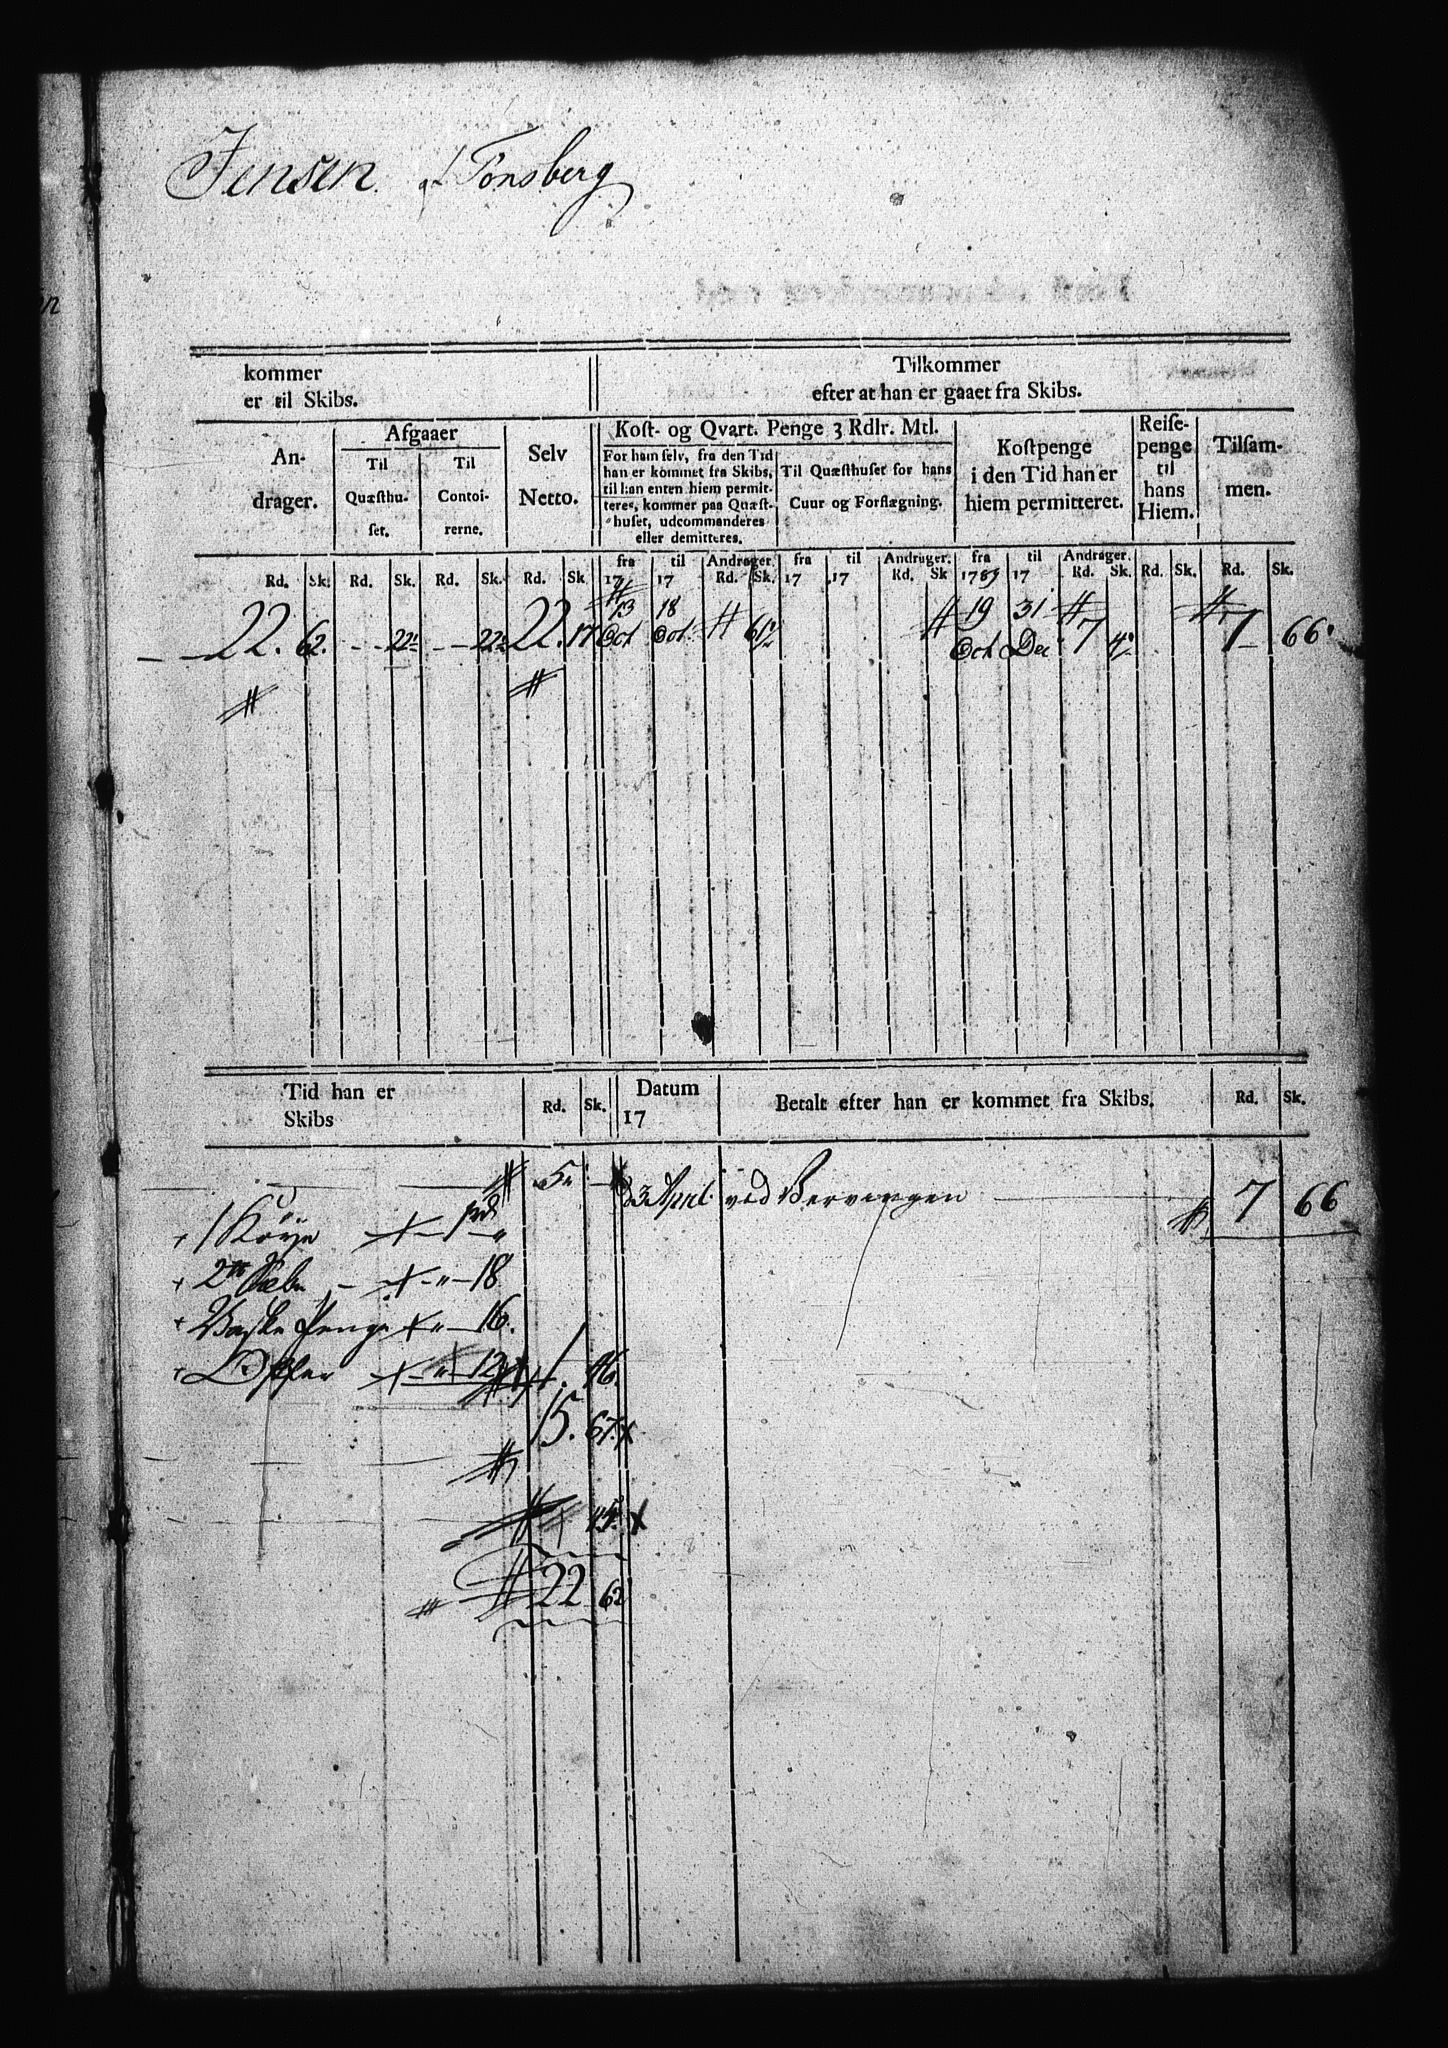 Jensen af Tønsberg
kommer
er til Skibs.
Tilkommer
efter at han er gaaet fra Skibs.
An-
drager.
Afgaaer
Til
Quæsthu-
set.
Til
Contoi-
rerne.
Selv
Netto.
Kost- og Qvart. Penge 3 Rdlr. Mtl.
For ham selv, fra den Tid
han er kommet fra Skibs,
til han enten hiem permit-
teres, kommer paa Quæst-
huset, udcommanderes
eller demitteres.
Til Quæsthuset for hans
Cuur og Forflægning.
Kostpenge
i den Tid han er
hiem permitteret.
Reise-
penge
til
hans
Hiem.
Tilsam-
men.
fra til Andrager. fra til Andrager. fra til Andrager.
Rd. Sk. Rd. Sk. Rd. Sk. Rd. Sk 17 17 Rd. Sk. 17 17 Rd. Sk 1789 17 Rd. Sk. Rd. Sk. Rd. Sk.
13 18 19 31
22. 62. 22 22 22. 17 Oct Oct. 61 Oct Dec 7 4 7 66
Tid han er
Skibs
Rd. Sk.
Datum
17
Betalt efter han er kommet fra Skibs.
Rd. Sk.
5
3 April ved Hervringen 7 66
1 Køye 1
2 Sæbe 18
Vaske Penge 16.
12 1. 46.
15. 67.
22 62